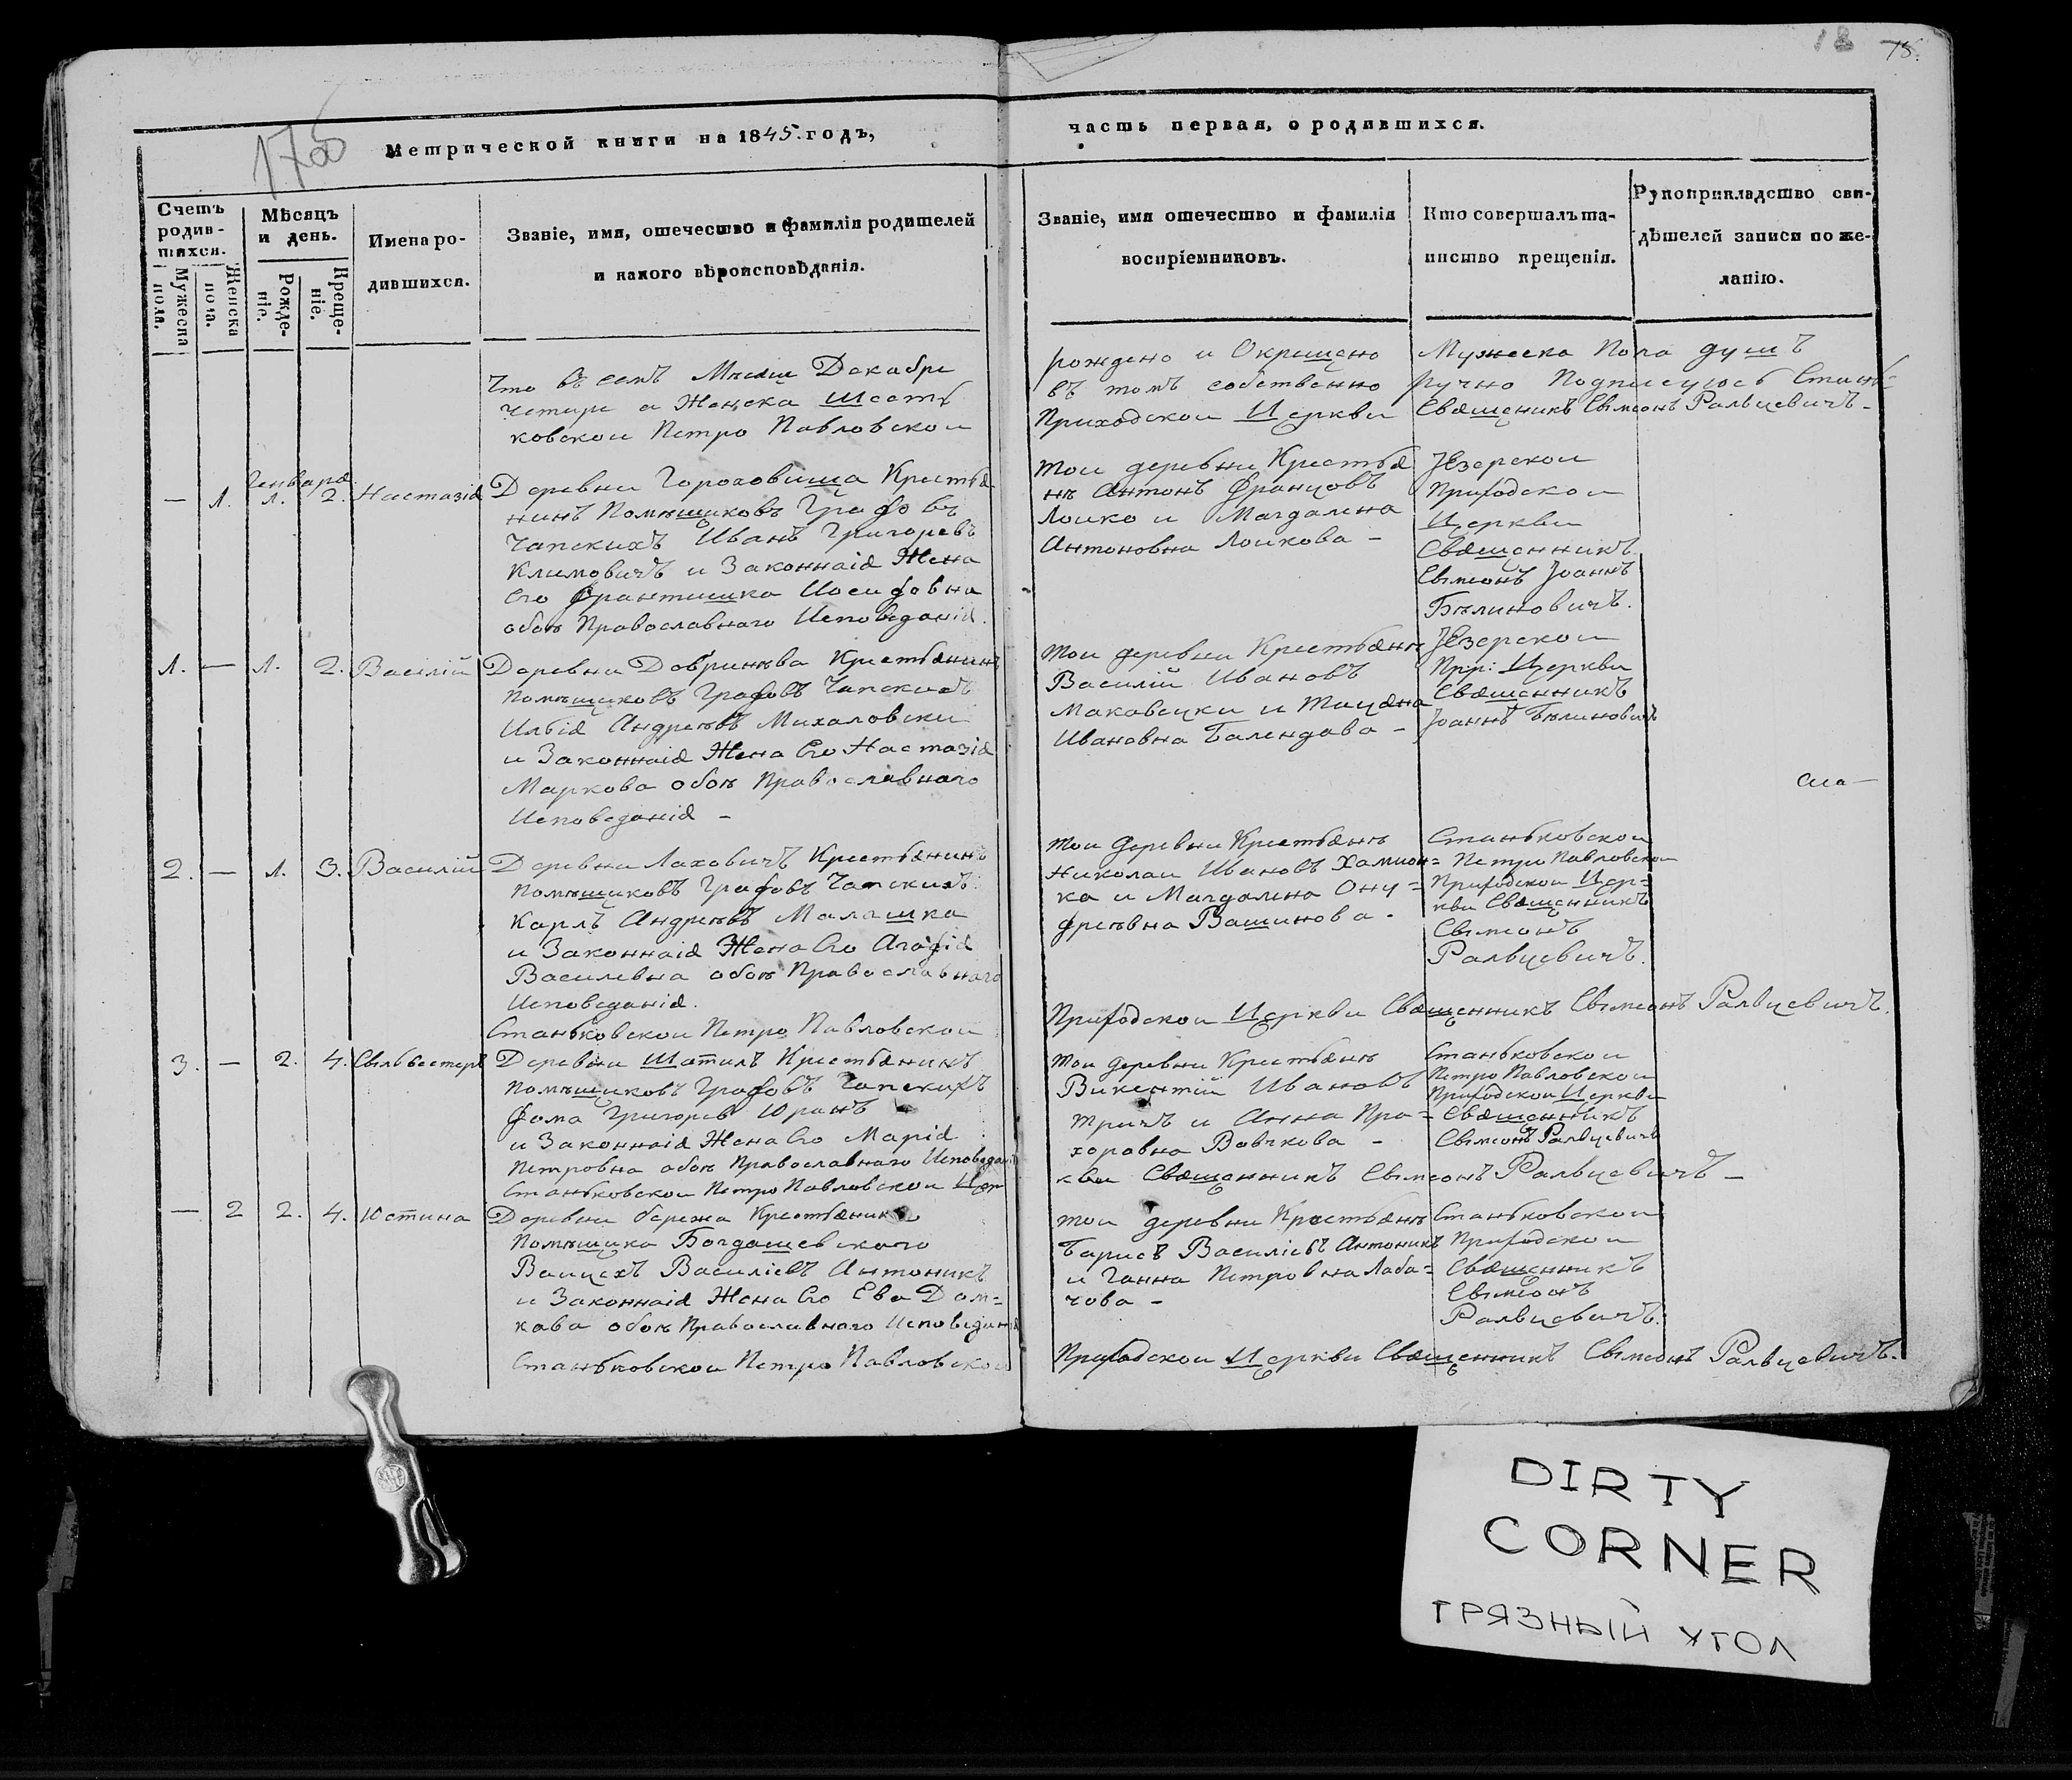 18 75.
1700
Метрической книги на 1845. годъ,
часть первая, о родившихся.
Счетъ родив-шихся.
Мужеска пола.
Женска пола.
Мѣсяцъ и день.
Рожде-ніе.
Креще-ніе.
Имена ро-дившихся.
Званіе, имя, отечество и фамилія родителей
и какого вѣроисповѣданія.
Званіе, имя отечество и фамилія
воспріемниковъ.
Кто совершалъ та-
инство крещенія.
Рукоприкладство сви-
дѣтелей записи по же-
ланію.
Что въ семъ Мѣсяцѣ Декабре
четире а Женска Шесть
ковской Петро Павловской
рождено и Окрещено
въ томъ собственно
Приходской Церкви
Мужеска Пола душъ
ручно Подписуюсь Стань-
Священикъ Сѵмеонъ Ральцевичъ -
Генваря
— 1. 1. 2. Настазія
Деревни Гороховища Крестья
нинъ Помѣщиковъ Графовъ
Чапскихъ Иванъ Григоревъ
Климовичъ и Законная Жена
Его Франтишка Иосифовна
обое Православнаго Исповеданія.
той деревни Крестья
не Антонъ Францовъ
Лойко и Магдалина
Антоновна Лойкова -
Езерской
Приходской
Церкви
Священникъ
Сѵмеонъ Іоаннъ
Бѣлиновичъ.
1. — 1. 2. Василій
Деревни Добринева Крестьянинъ
Помѣщиковъ Графовъ Чапскихъ
Илья Андреевъ Михаловски
и Законная Жена Его Настазія
Маркова обое Православнаго
Исповеданія -
той деревни Крестьяне
Василій Ивановъ
Маковецки и Тацяна
Ивановна Балендова -
Езерской
Прир: Церкви
Священникъ
Іоаннъ Бѣлиновичъ
2. — 1. 3. Василій
Деревни Лаховичъ Крестьянинъ
Помѣщиковъ Графовъ Чапскихъ
Карлъ Андреевъ Малашка
и Законная Жена Его Агафія
Василевна обое Православнаго
Исповеданія.
Станьковской Петро Павловской
той деревни Крестьяне
Николай Ивановъ Хамион=
ка и Магдалина Ону=
фреевна Вашинова -
Станьковской
Петро Павловской
Приходской Цер=
кви Священникъ
Сѵмеонъ
Ральцевичъ.
Приходской Церкви Священникъ Сѵмеонъ Ральцевичъ.
3. — 2. 4. Сѵльвестеръ
Деревни Шатилъ Крестьянинъ
Помѣщиковъ Графовъ Чапскихъ
Фома Григоревъ Юранъ
и Законная Жена Его Марія
Петровна обое Православнаго Исповеданія
Станьковской Петро Павловской Цер
той деревни Крестьяне
Викентій Ивановъ
тричъ и Анна Про=
хоровна Вовчкова -
Станьковской
Петро Павловской
Приходской Церкви
Священникъ
Сѵмеонъ Ральцевичъ
кви Священникъ Сѵмеонъ Ральцевичъ -
— 2 2. 4. Юстина
Деревни бережа Крестьянинъ
Помѣщика Богдашевскаго
Войцехъ Василіевъ Антоникъ
и Законная Жена Его Ева Дом=
кова обое Православнаго Исповеданія
Станьковской Петро Павловской
той деревни Крестьяне
Барисъ Василіевъ Антоникъ
и Ганна Петровна Лаба=
чова -
Станьковской
Приходской
Священникъ
Сѵмеонъ
Ральцевичъ.
Приходской Церкви Священникъ Сѵмеонъ Ральцевичъ.
DIRTY
CORNER
ГРЯЗНЫЙ УГОЛ